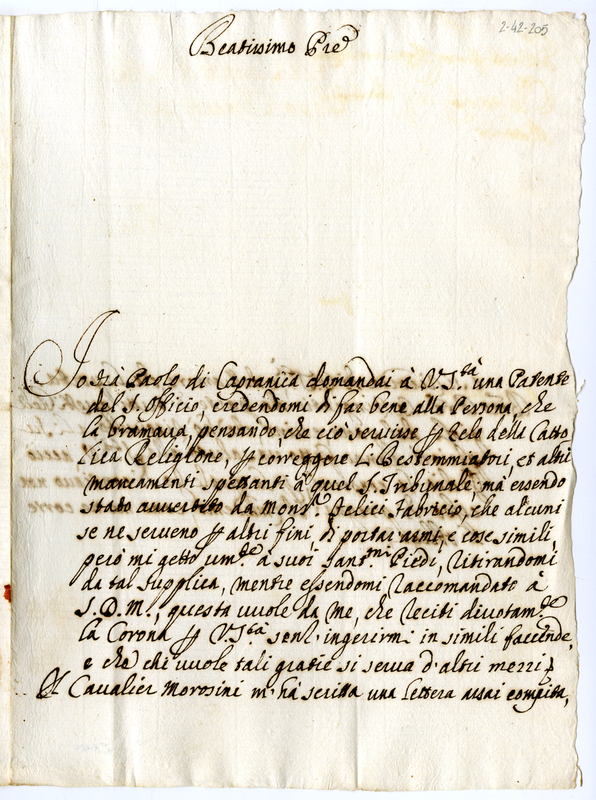 2-42-205
Beatissimo Pre
Io frà Paolo di Capranica domandai à V. S.tà una Patente
del S. Officio, credendomi di far bene alla Persona, che
la bramaua, pensando, che ciò seruisse p zelo della Catto
lica Religione, p correggere li Bestemmiatori, et altri
mancamenti spettanti à quel S. Tribunale, mà essendo
stato auuertito da Mons.r Felici Fabricio, che alcuni
se ne serueno p altri fini di portar armi, e cose simili,
però mi getto um.te à suoi sant.mi Piedi, ritirandomi
da tal supplica, mentre essendomi raccomandato à
S. D. M., questa uuole da me, che reciti diuotam.te
la Corona p V. S.tà senz' ingerirmi in simili faccende,
e che chi uuole tali gratie si serua d'altri mezzi,
Il Caualier Morosini m'hà scritta una lettera assai compita,